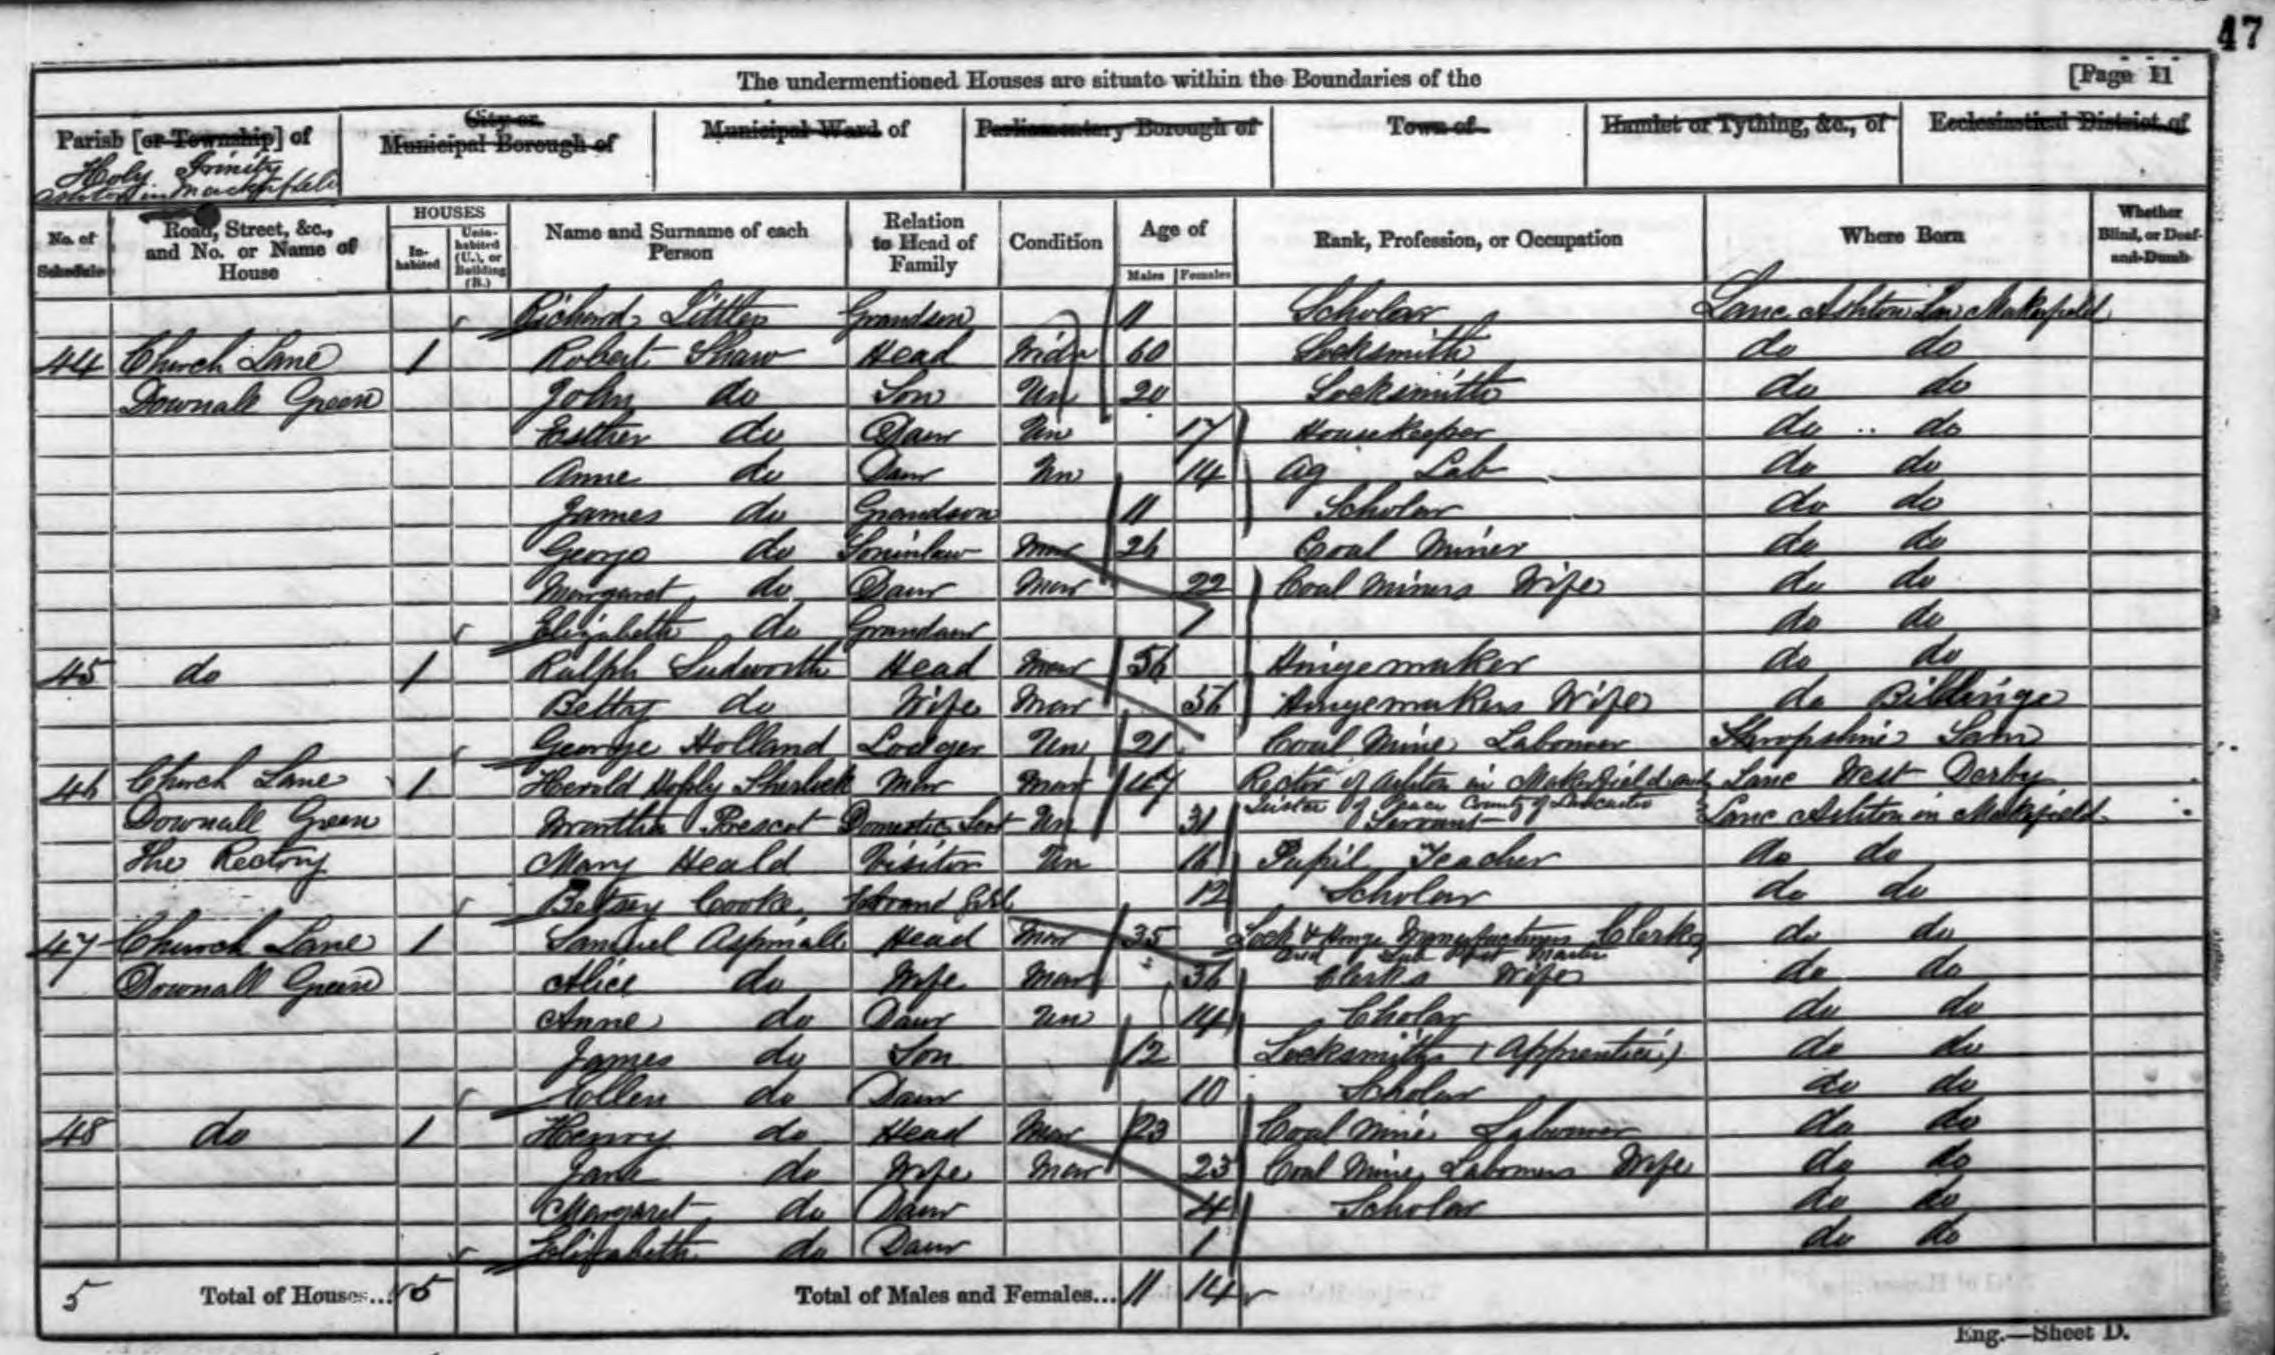 47
The undermentioned Houses are situate within the Boundaries of the [Page 11
Parish [or Township] of City or Municipal Borough of Municipal Ward of Parliamentary Borough of Town of Hamlet or Tything, &c., of Ecclesiastical District of
Holy Trinity
Ashton in Mackerfield
No. of Schedule Road, Street, &c., and No. or Name of House HOUSES In-habited Unin-habited (U.), or Building (B.) Name and Surname of each Person Relation to Head of Family Condition Age of Males Females Rank, Profession, or Occupation Where Born Whether Blind, or Deaf-and-Dumb
Richard Littler Grandson 11 Scholar Lanc Ashton in Makerfield
44 Church Lane 1 Robert Shaw Head Widr 60 Locksmith do do
Downall Green John do Son Un 20 Locksmith do do
Esther do Daur Un 17 Housekeeper do do
Anne do Daur Un 14 Ag Lab do do
James do Grandson 11 Scholar do do
George do Soninlaw Mar 26 Coal Miner do do
Margaret do Daur Mar 22 Coal Miners Wife do do
Elizabeth do Grandaur do do
45 do 1 Ralph Ludworth Head Mar 56 Hingemaker do do
Betty do Wife Mar 56 Hingemakers Wife do Billinge
George Holland Lodger Un 21 Coal Mine Labourer Shropshire
46 Church Lane 1 Sherlock Mar 47 Rector of Ashton in Makerfield and Lanc West Derby
Downall Green Martha Prescot Domestic Sert Un 31 of Peace County of Lancaster Servant Lanc Ashton in Makerfield
The Rectory Mary Heald Visitor Un 16 Pupil Teacher do do
Betsey Cooke 12 Scholar do do
47 Church Lane 1 Samuel Aspinall Head Mar 35 Lock & Hinge Manufacturers Clerk do do
and Sub Post Master
Downall Green Alice do Wife Mar 36 Clerks Wife do do
Anne do Daur Un 14 Cholar do do
James do Son 12 Locksmith (Apprentice) do do
Ellen do Daur 10 Scholar do do
48 do 1 Henry do Head Mar 23 Coal Mine Labourer do do
Jane do Wife Mar 23 Coal Mine Labourers Wife do do
Margaret do Daur 4 Scholar do do
Elizabeth do Daur 1 do do
5 Total of Houses... 5 Total of Males and Females... 11 14
Eng.—Sheet D.